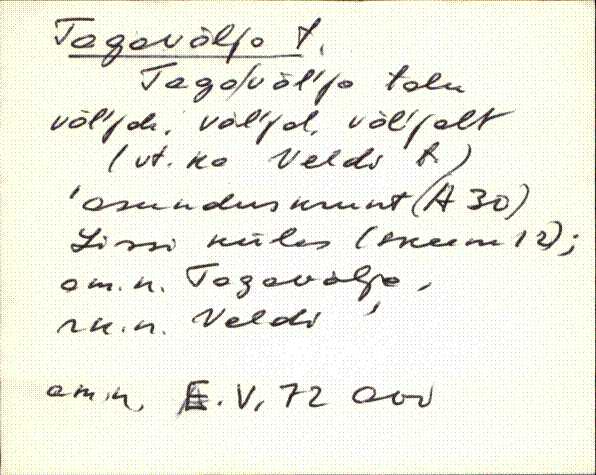 Tagavälja t.
Taga/väl'ja talu
väl'jale, väl'jal, väl'jalt
(vt. ka Veldi t.)
'asunduskrunt (A 30)
Lissi külas (skeem 12);
am.n. Tagavälja,
rk.n. Veldi
am.n. E.V. 72